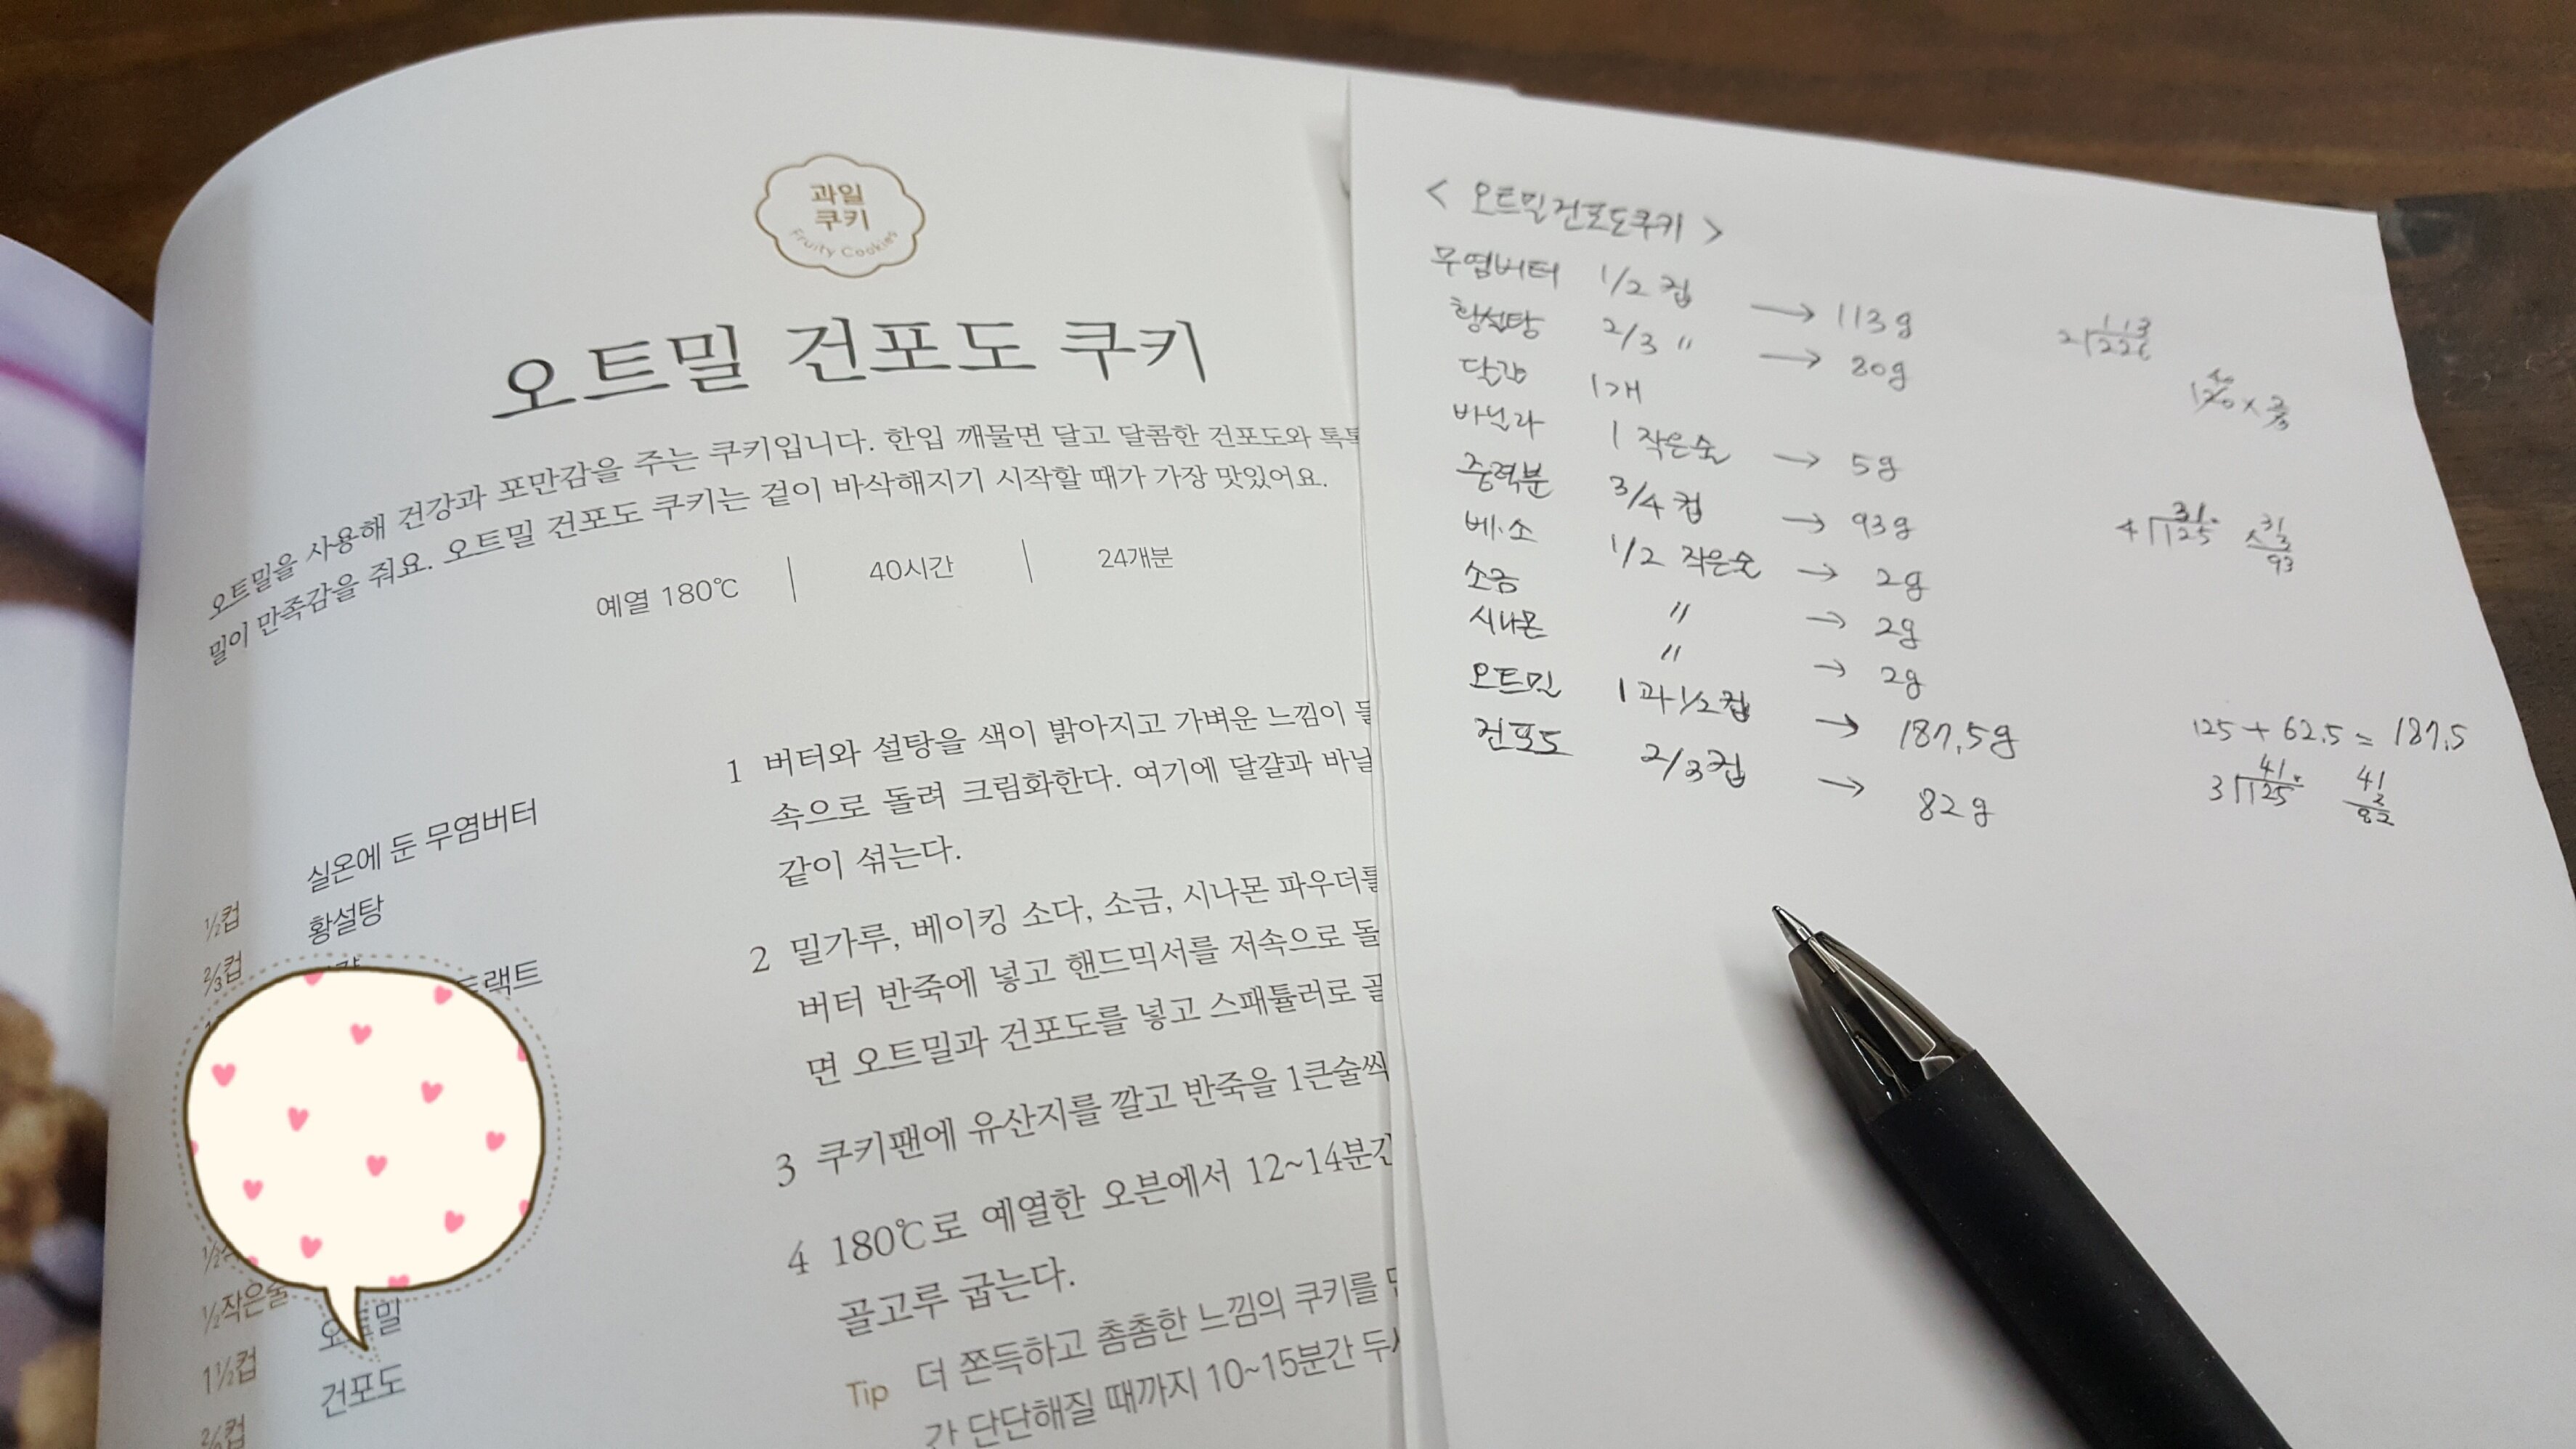 과일
쿠키
Fruity Cookies
오트밀 건포도 쿠키
오트밀을 사용해 건강과 포만감을 주는 쿠키입니다. 한입 깨물면 달고 달콤한 건포도와 톡톡
밀이 만족감을 줘요. 오트밀 건포도 쿠키는 겉이 바삭해지기 시작할 때가 가장 맛있어요.
예열 180℃ | 40시간 | 24개분
½컵 실온에 둔 무염버터
⅔컵 황설탕
트랙트
½작은술
1½컵 오트밀
건포도
1 버터와 설탕을 색이 밝아지고 가벼운 느낌이
속으로 돌려 크림화한다. 여기에 달걀과 바닐
같이 섞는다.
2 밀가루, 베이킹 소다, 소금, 시나몬 파우더를
버터 반죽에 넣고 핸드믹서를 저속으로 돌
면 오트밀과 건포도를 넣고 스패튤러로 골
3 쿠키팬에 유산지를 깔고 반죽을 1큰술씩
4 180℃로 예열한 오븐에서 12~14분간
골고루 굽는다.
Tip 더 쫀득하고 촘촘한 느낌의 쿠키를
간 단단해질 때까지 10~15분간 두
< 오트밀건포도쿠키 >
무염버터 1/2 컵 → 113g
황설탕 2/3 〃 → 80g
달걀 1개
바닐라 1 작은술 → 5g
중력분 3/4 컵 → 93g
베.소 1/2 작은술 → 2g
소금 〃 → 2g
시나몬 〃 → 2g
오트밀 1과 1/2컵 → 187.5g
건포도 2/3컵 → 82g
113
2 226
31.
4 125
31
×3
93
125 + 62.5 = 187.5
41.
3 125
41
2
82